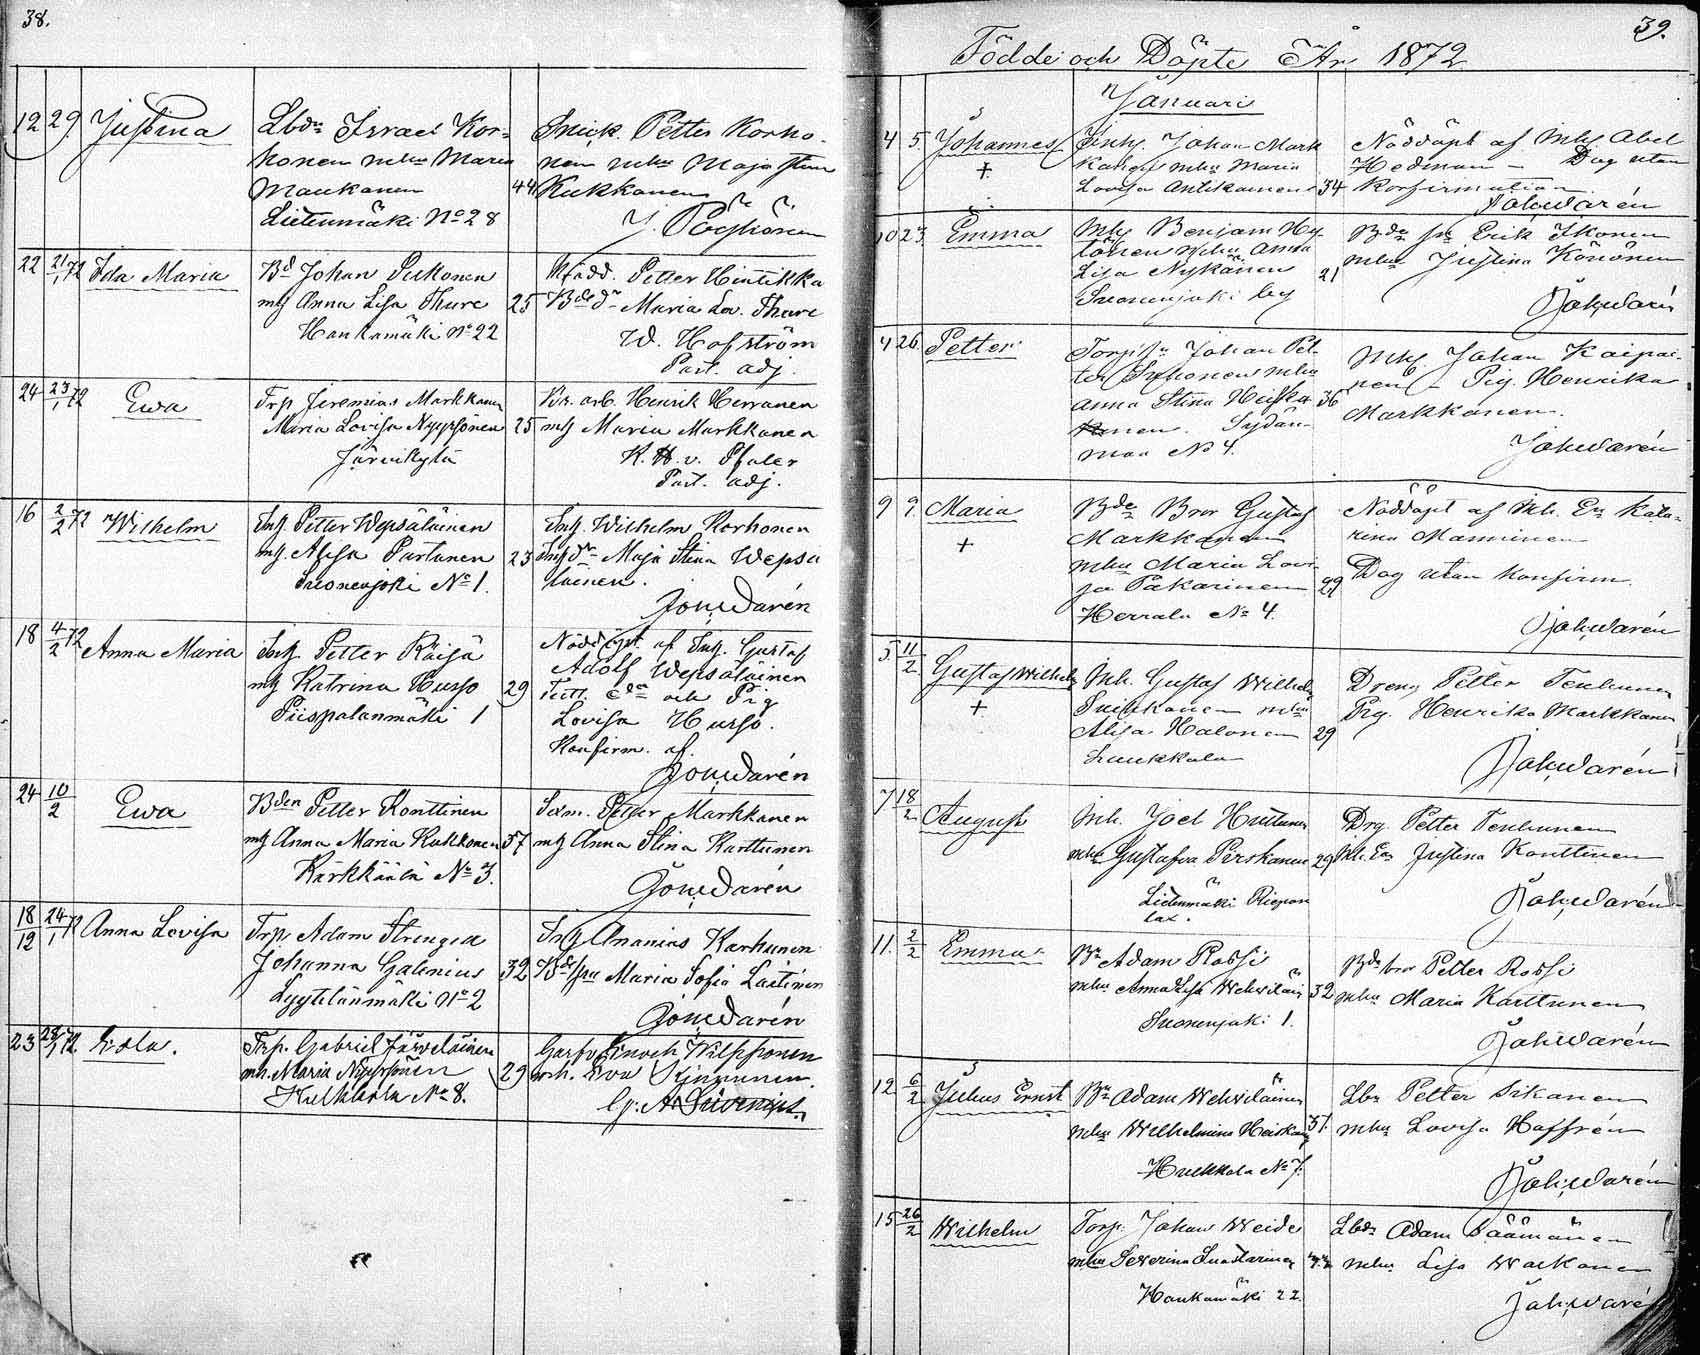 38.
12 29 Justina Lbdn Israel Kor-
honen mhu Maria
Maukonen
Lietenmäki No 28
44
Snick. Petter Korho-
nen mhu Maja Stina
Kukkonen
J. Pöyhönen
22 21/1 72 Ida Maria Bd Johan Pukonen
mH Anna Lisa Thure
Hankamäki No 22
25
Petter Hintikka
Bdedr Maria Lov. Thure
W. Hofström
Past. adj.
24 23/1 72 Ewa Trp Jeremias Markkanen
Maria Lovisa Nyyssönen
Järvikylä
25
Kyr. arb. Henrik Herranen
mH Maria Markkanen
K. H. v. Pfaler
Past. adj.
16 2/2 72 Wilhelm Inh Petter Wepsäläinen
mH. Alisa Partanen
Suonenjoki No 1.
23
Inh. Wilhelm Korhonen
Inhdr Maja Stina Wepsä
läinen.
Joh. Warén
18 4/2 72 Anna Maria Inh Petter Räisä
mH Katrina Husso
Piispalanmäki 1
29
Nöddöpt af Inh. Gustaf
Adolf Wepsäläinen
Lovisa Husso.
Konfirm. af.
Joh. Warén
24 10/2 Ewa Bden Petter Konttinen
mH Anna Maria Kukkonen
Kärkkäälä No 3.
37
Petter Markkanen
mH Anna Stina Karttunen
Joh. Warén
18/12 24/1 72 Anna Lovisa Trp Adam Strenged
Johanna Galenius
Lyytilänmäki No 2
32
Inh Ananias Karhunen
Maria Sofia Laitinen
Joh. Warén
23 28/1 72. Trp. Gabriel Järveläinen
mh. Maria Nyyssönen
Kulhhola No 8.
29
Enoch Wilpponen
och. Eva Kinnunen.
39.
Födde och Döpte År 1872
Januari
4 5. Johannes Inh. Johan Mark
kanen mhu Maria
Lovisa Antikainen
+
34
Nöddöpt af Inh Abel
Hedman – Dog utan
Konfirmation
Joh. Warén
10 23. Emma Inh Benjam Hy-
tönen mhu Anna
Lisa Nykänen
Suonenjoki by
21
Bde sn Erik Ikonen
mhu Justina Könönen
Joh. Warén
4 26. Petter Torp:sn Johan Pet-
ter Suhonen mhu
Anna Stina Heiska
nen. Sydän-
maa No 4.
36
Inh. Johan Kaipai-
nen – Pig. Henrika
Markkanen.
Joh. Warén
9 9. Maria Bde Bror Gustaf
Markkanen
mhu Maria Lovi-
sa Pakarinen
Herrala No 4.
+
29
Nöddöpt af Inh. En Kata-
rina Manninen
Dog utan konfirm.
Joh. Warén
5. 11/2 Gustaf Wilhelm Inh. Gustaf Wilhelm
mhu
Alisa Halonen
Luukkola
+
29
Dreng Petter Tenhunen
Pig. Henrika Markkanen
Joh. Warén
7 18/2 August Inh. Joel Huttunen
mhu Gustafva Pirskanen
Lietenmäki Riepon
lax.
29
Drg. Petter Tenhunen
Inh. En Justina Konttinen
Joh. Warén
11. 2/2 Emma Bn Adam Rossi
mhu Anna Lisa Wehviläin
Suonenjoki 1.
32
Bde bror Petter Rossi
mhu Maria Karttunen
Joh. Warén
12 6/2 Julius Ernst Bn Adam Wehviläinen
mhu Wilhelmina Heiskan
Hukkola No 7.
37.
Lbn Petter Sikanen
mhu Lovisa Hoffrén
Joh. Warén
15 26/2 Wilhelm Torp. Johan Weide
mhu Severina Suastarinen
Hankamäki 22.
Lbdn Adam Säämänen
mhu Lisa Waekonen
Joh. Warén